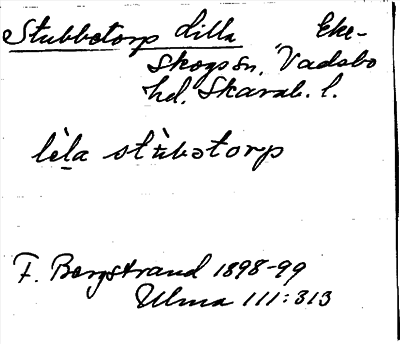 Stubbetorp Lilla Eke-
skogs sn, Vadsbo
hd, Skarab. l.
lìla stùbətorp
F. Bergstrand 1898-99
Ulma 111:313